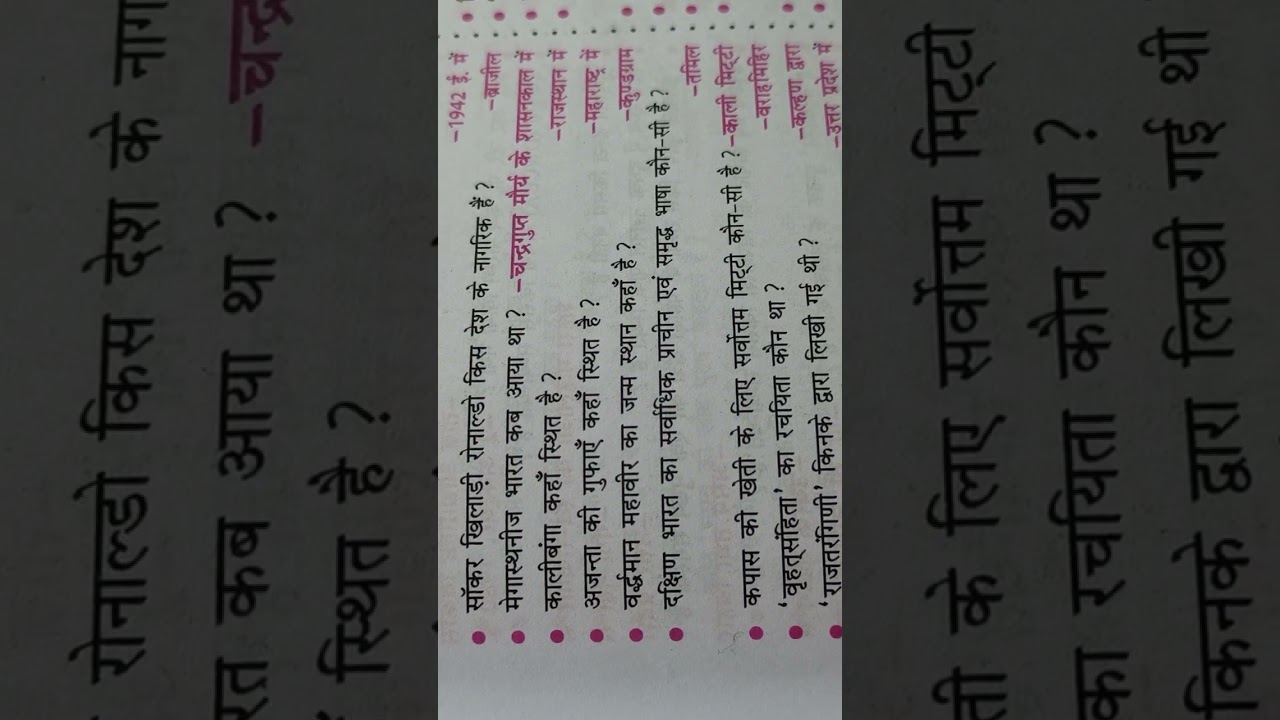 -1942 ई. में
सॉकर खिलाड़ी रोनाल्डो किस देश के नागरिक हैं ? -ब्राजील
मेगास्थनीज भारत कब आया था ? -चन्द्रगुप्त मौर्य के शासनकाल में
कालीबंगा कहाँ स्थित है ? -राजस्थान में
अजन्ता की गुफाएँ कहाँ स्थित है ? -महाराष्ट्र में
वर्द्धमान महावीर का जन्म स्थान कहाँ है ? -कुण्डग्राम
दक्षिण भारत का सर्वाधिक प्राचीन एवं समृद्ध भाषा कौन-सी है ?
-तमिल
कपास की खेती के लिए सर्वोत्तम मिट्टी कौन-सी है ? -काली मिट्टी
'वृहत्संहिता' का रचयिता कौन था ? -वराहमिहिर
'राजतरंगिणी' किनके द्वारा लिखी गई थी ? -कल्हण द्वारा
-उत्तर प्रदेश में